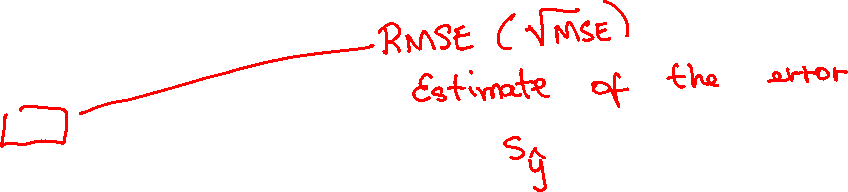 RMSE (√MSE)
Estimate of the error
Sŷ